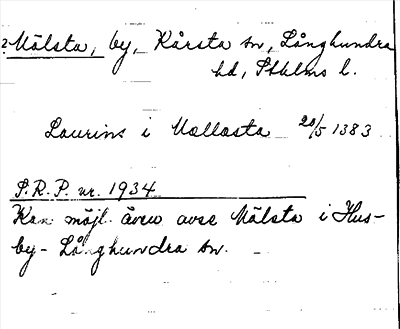 2. Mälsta, by, Kårsta sn, Långhundra
hd, Sthlms l.
Laurins i Mællasta 20/5 1383
S.R.P. nr. 1934
Kan möjl. även avse Mälsta i Hus-
by-Långhundra sn.